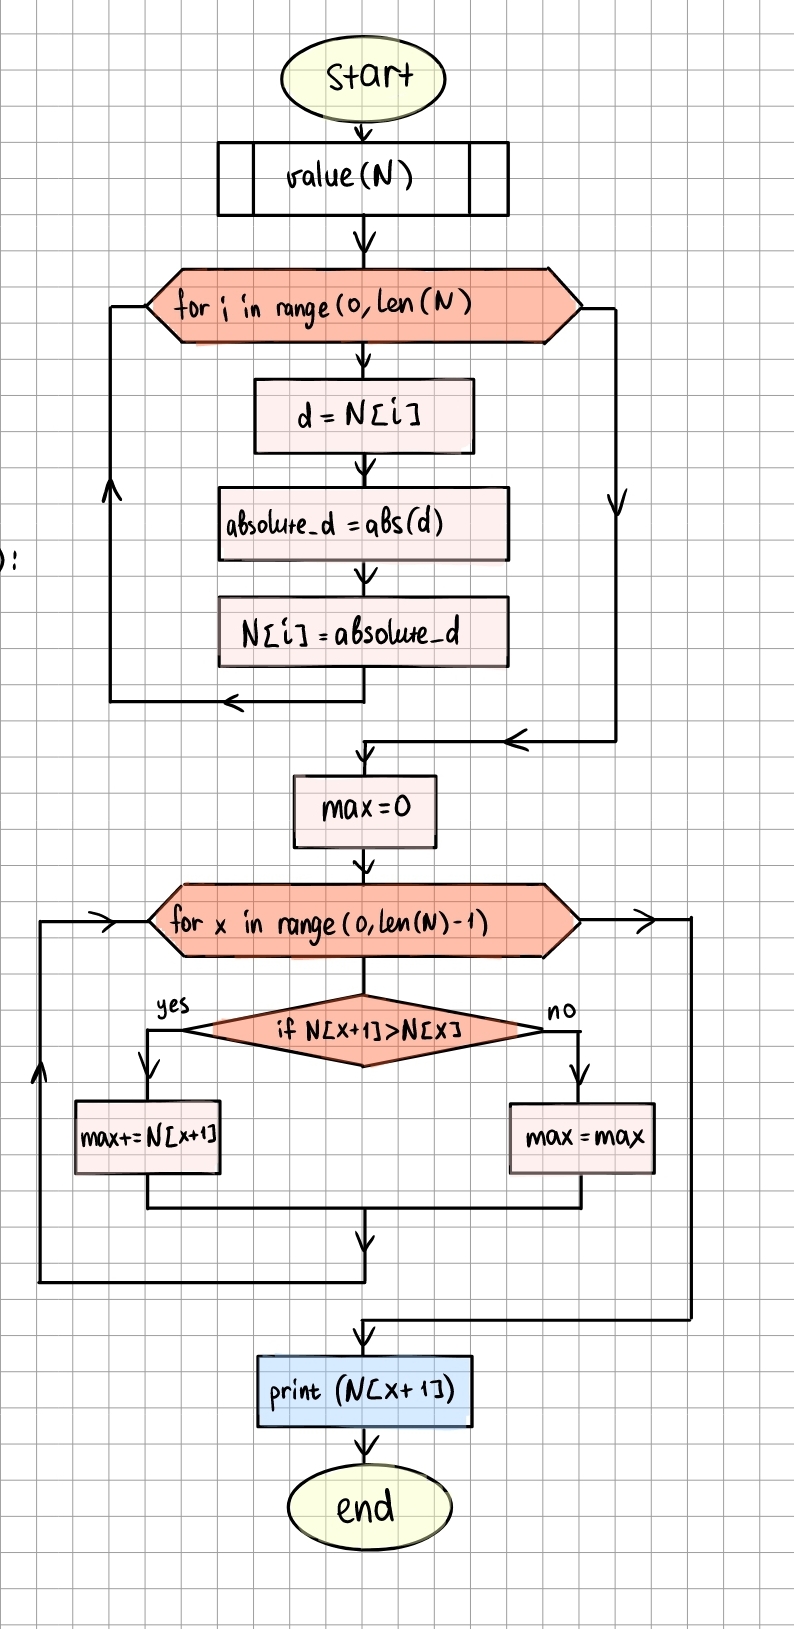 start
value(N)
for i in range(0,len(N)
d = N[i]
absolute_d = abs(d)
):
N[i] = absolute_d
max=0
for x in range(0,len(N)-1)
yes
no
if N[x+1]>N[x]
max+=N[x+1]
max=max
print (N[x+1])
end